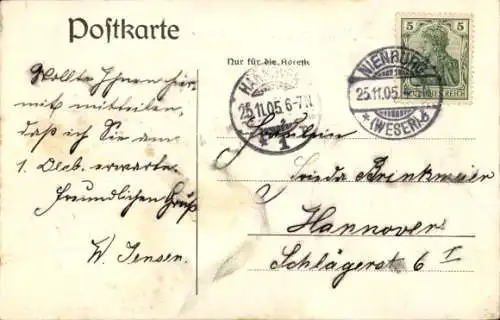 Postkarte
Nur für die Adresse
5 5
DEUTSCHES REICH
NIENBURG
25.11.05.
*(WESER)*
HANNOVER
25.11.05.6-7.N
* 1 *
Wollte Ihnen hier-
mit mitteilen,
daß ich Sie am
1. Dcb. erwarte.
Freundlichen Gruß
W. Jensen.
Fräulein
Frieda Brinkmeier
Hannover
Schlägerst 6 I